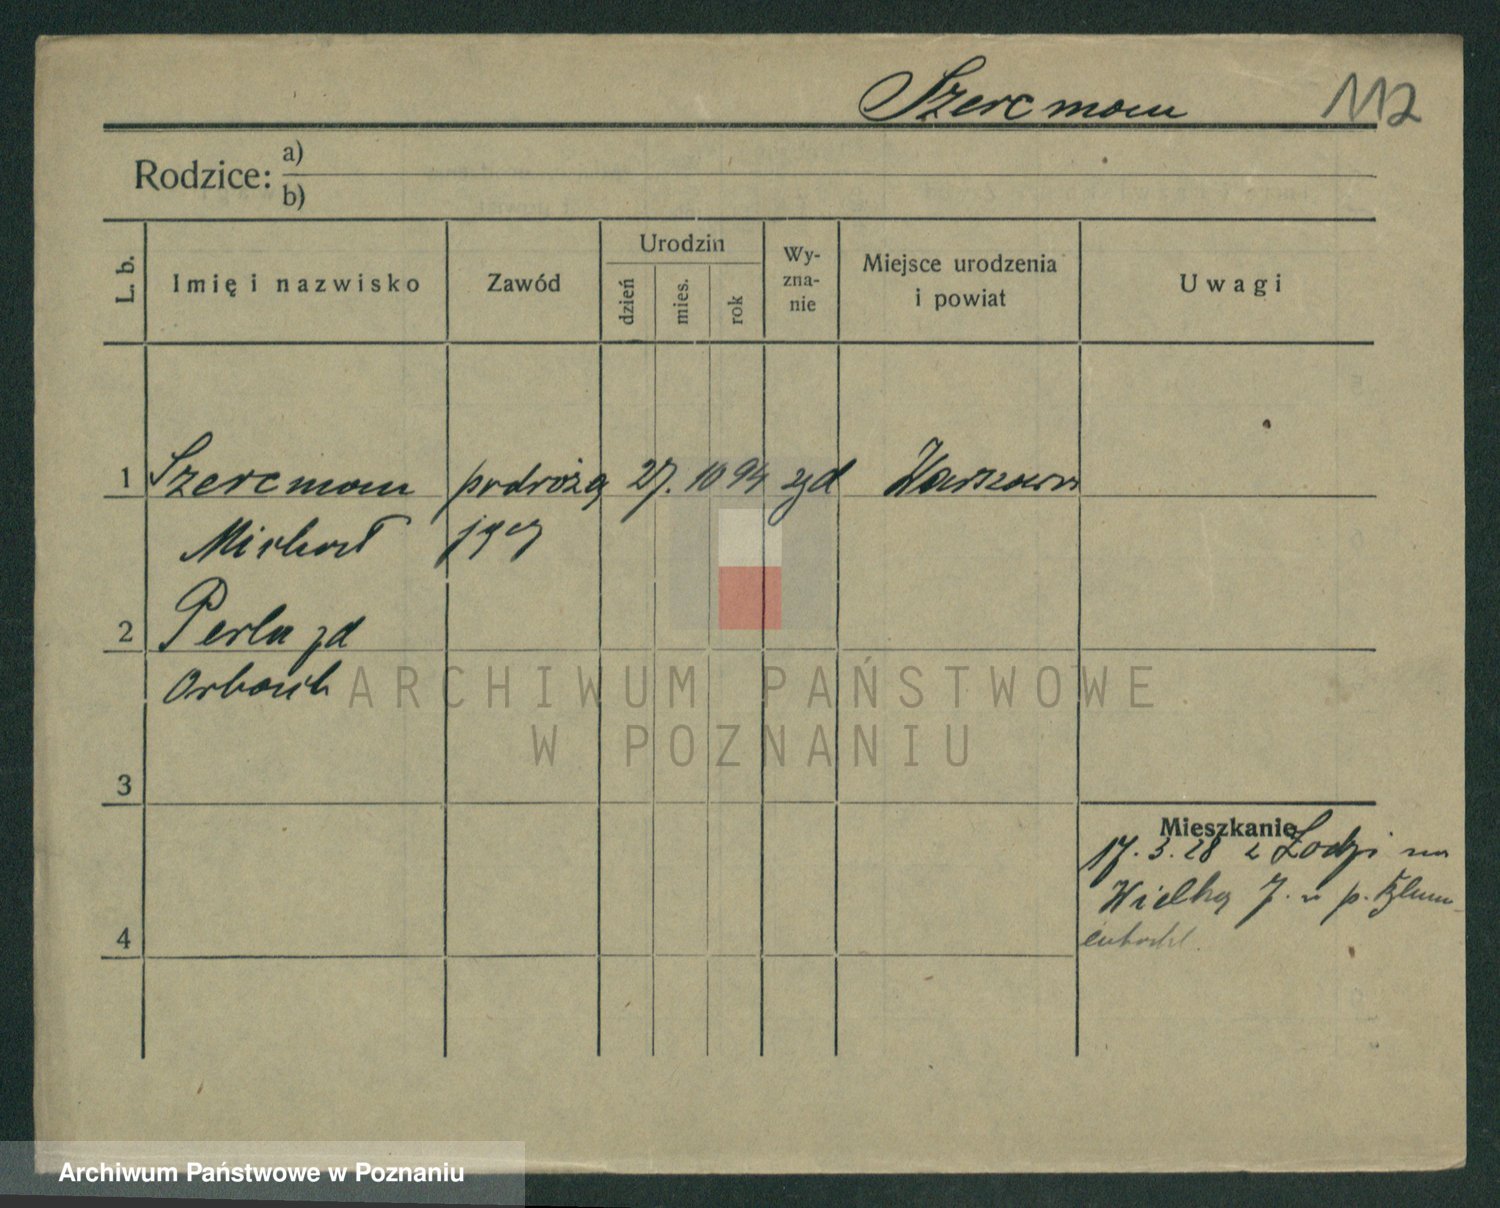 Szercmann 112
Rodzice: a)
b)
L. b. Imię i nazwisko Zawód Urodzin dzień mies. rok Wy-zna-nie Miejsce urodzenia i powiat Uwagi
1 Szercman podróżą 27. 10 94 żyd Warszawa
Michał jący
2 Perla zd
Orbach
3
Mieszkanie
17. 3. 28 z Łodzi na
Wielką 7. u p.
4
ARCHIWUM PAŃSTWOWE
W POZNANIU
Archiwum Państwowe w Poznaniu